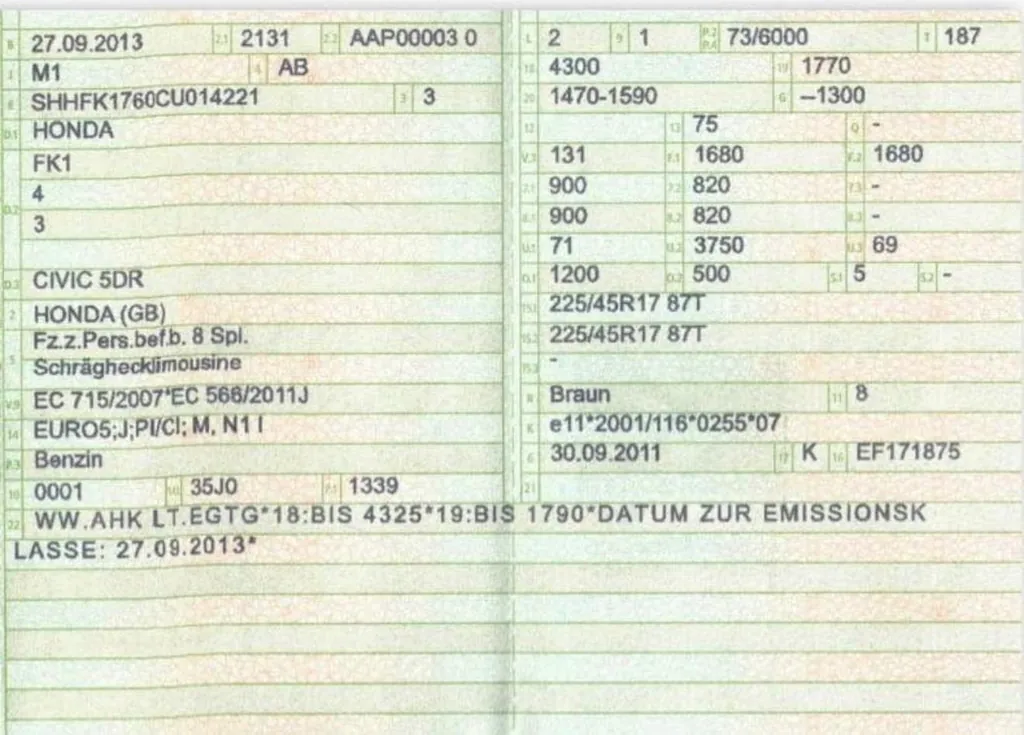 B 27.09.2013 2.1 2131 2.2 AAP00003 0
J M1 4 AB
E SHHFK1760CU014221 3 3
D.1 HONDA
FK1
D.2 4
3
D.3 CIVIC 5DR
2 HONDA (GB)
Fz.z.Pers.bef.b. 8 Spl.
5 Schräghecklimousine
V.9 EC 715/2007*EC 566/2011J
14 EURO5;J;PI/CI; M, N1 I
P.3 Benzin
10 0001 14.1 35J0 P.1 1339
L 2 9 1 P.2 P.4 73/6000 T 187
18 4300 19 1770
20 1470-1590 G —1300
12 13 75 Q -
V.7 131 F.1 1680 F.2 1680
7.1 900 7.2 820 7.3 -
8.1 900 8.2 820 8.3 -
U.1 71 U.2 3750 U.3 69
O.1 1200 O.2 500 S.1 5 S.2 -
15.1 225/45R17 87T
15.2 225/45R17 87T
15.3 -
R Braun 11 8
K e11*2001/116*0255*07
6 30.09.2011 17 K 16 EF171875
21
22 WW.AHK LT.EGTG*18:BIS 4325*19:BIS 1790*DATUM ZUR EMISSIONSK
LASSE: 27.09.2013*